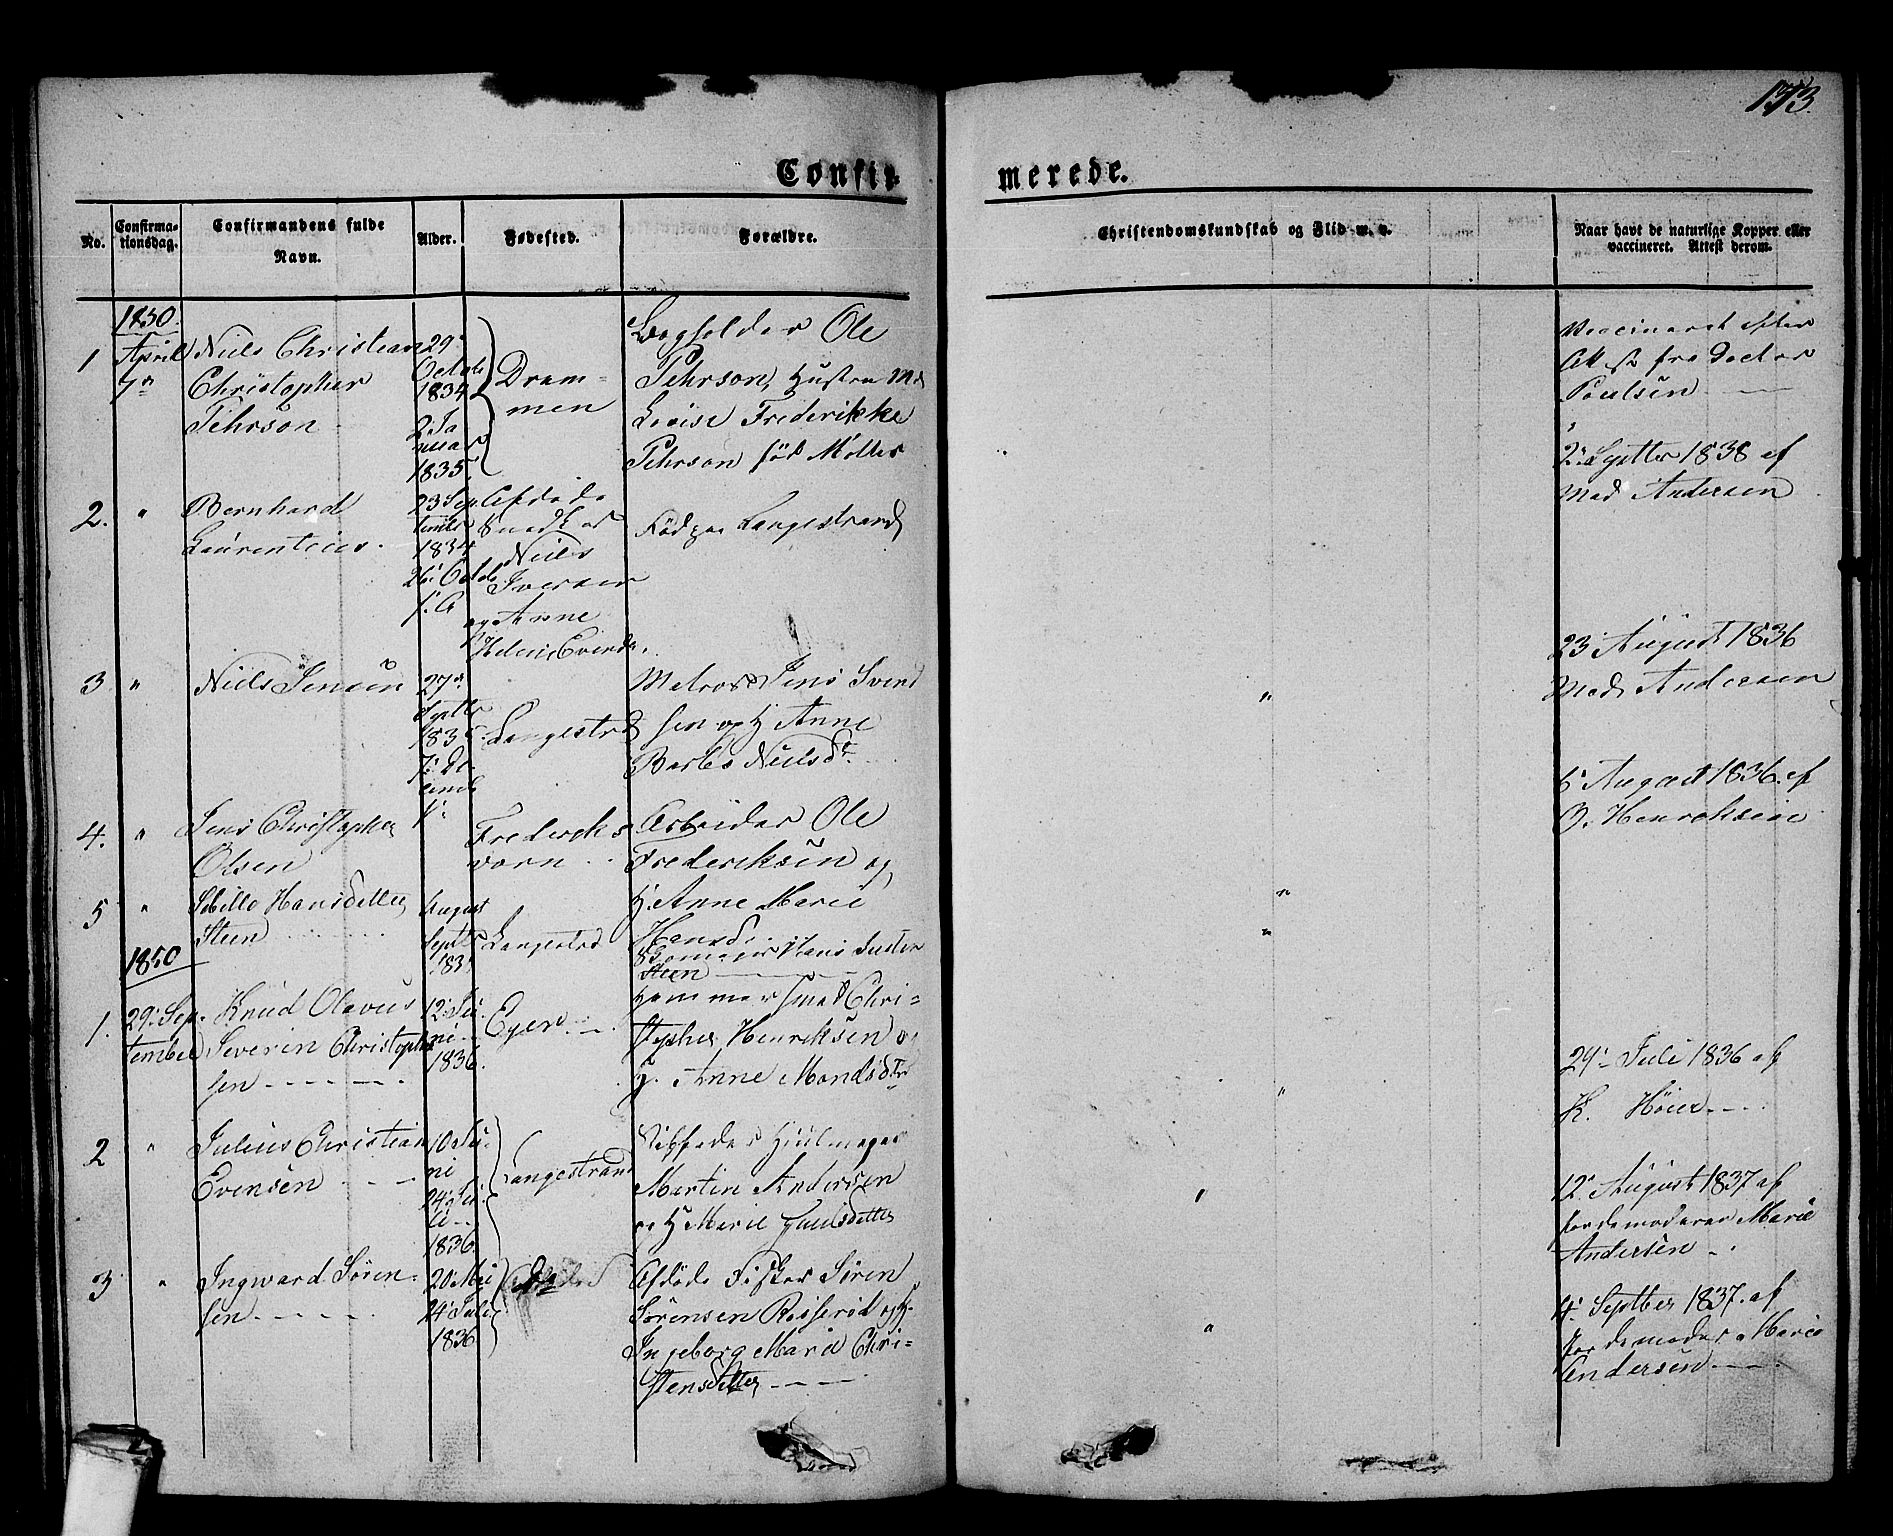 173.
Confir-
merede.
No.
Confirma-
tionsdag.
Confirmandens fulde
Navn.
Alder.
Fødested.
Forældre.
Christendomskundskab og Flid m. v.
Naar havt de naturlige Kopper eller
vaccineret. Attest derom.
1850.
1
April
7de
Niels Christian
Christopher
Pehrson
29
Octob
1834
2 Ja
nuar
1835
Dram-
men
Bogholder Ole
Pehrson, Hustru
Lovise Frederikke
Pehrson fød Møller
Vaccineret efter
Attest fra Doctor
Poulsen
2. "
Bernhard
Laurentius.
23 Sep
tember
1834
26 Octob
Afdøde
Snedker
Niels
Iversen
og Anne
Helene Evensd.
Fød paa Langestrand
2. Septter 1838 af
Mad Andersen
3 "
Niels Jensen
27de
Septbr
183
Langestrd
Matros Jens Svend
sen og H Anne
Barbo Nielsdr
"
23 August 1836
Mad Andersen
4. "
Jens Christopher
Olsen
Fredericks
værn
Arbeider Ole
Frederiksen og
H. Anne Marie
Hansd.
"
6 August 1836. af
O. Henreksen
5 "
Hansdatter
Steen
August
Septbr
183
Langestrd
Hans
Steen
"
1850
1.
29. Sep-
tember
Knud Olavus
Severin Christopher
sen
12. Ju-
ni
1836.
Eger
Hammersmed Chri-
stopher Henriksen og
H. Anne Mondsdtr
"
29. Juli 1836 af
K. Høier
2 "
Julius Christian
Evensen
10 Ju-
ni
24. Ju-
li
1836.
Langestrand
Hjulmager
Martin Andersen
og H Marie
"
12. August 1837 af
Jordemoderen Marie
Andersen
3 "
Ingward Søren-
sen
20 Mai
24. Juli
1836
Afdøde Fisker Søren
Sørensen og H.
Ingeborg Marie Chri-
stensdatter
"
4. Septber 1837. af
Jordemoder Marie
Andersen